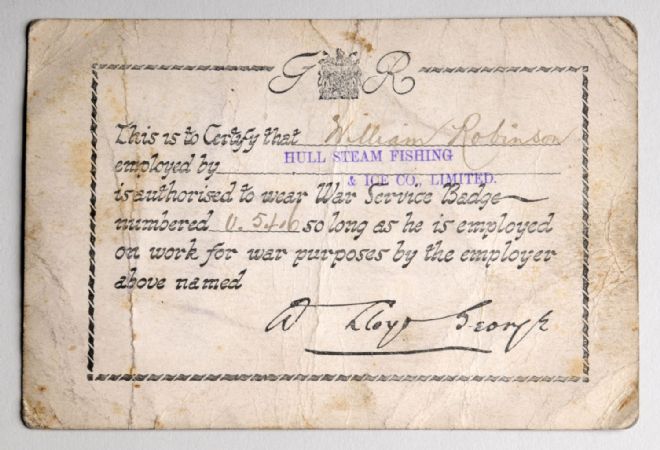 G R
This is to Certify that William Robinson
employed by HULL STEAM FISHING
& ICE CO., LIMITED.
is authorised to wear War Service Badge
numbered U. 5406 so long as he is employed
on work for war purposes by the employer
above named
D Lloyd George